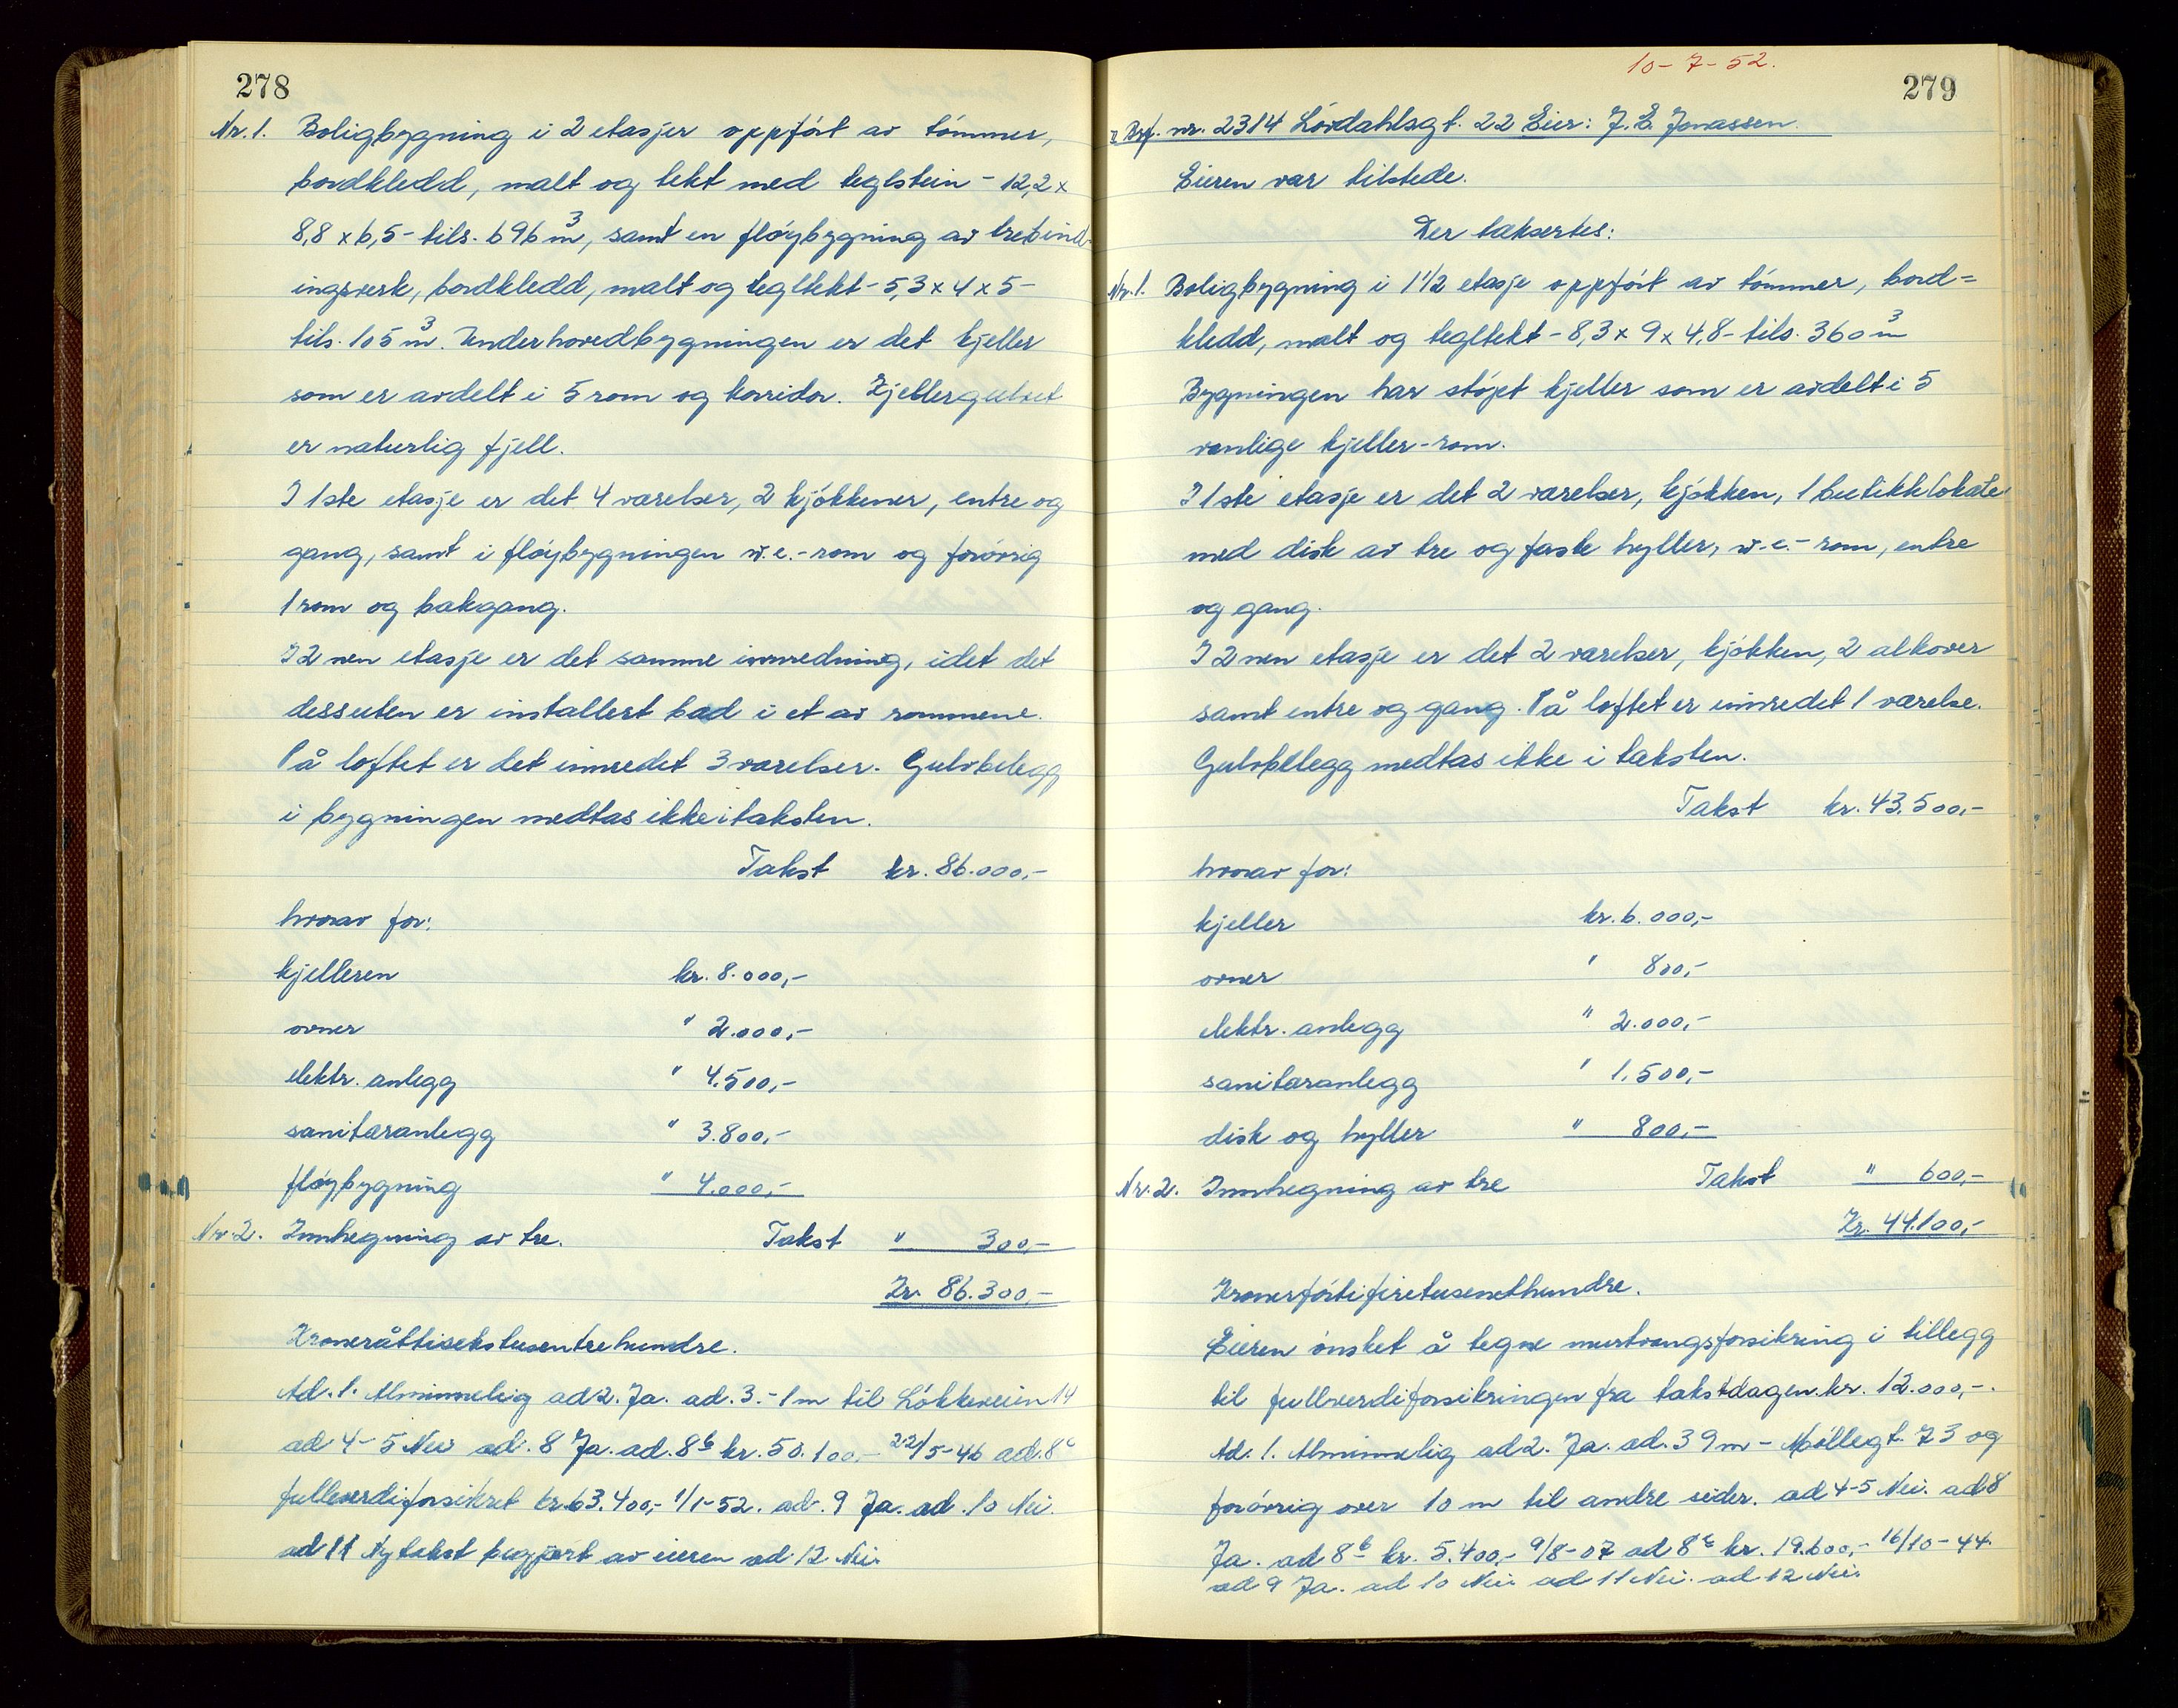 278
Nr. 1. Boligbygning i 2 etasjer oppført av tømmer,
bordkledd, malt og tekt med teglstein - 12,2 x
8,8 x 6,5 - tils. 696 m³, samt en fløybygning av trebind-
ingsverk, bordkledd, malt og tegltekt - 5,3 x 4 x 5 -
tils. 105 m³. Under hovedbygningen er det kjeller
som er avdelt i 5 rom og korridor. Kjellergulvet
er naturlig fjell.
I 1ste etasje er det 4 værelser, 2 kjøkkener, entre og
gang, samt i fløybygningen w.c.-rom og forøvrig
1 rom og bakgang.
I 2nen etasje er det samme innredning, idet det
dessuten er installert bad i et av rommene.
På loftet er det innredet 3 værelser. Gulvbelegg
i bygningen medtas ikke i taksten.
Takst kr. 86.000,-
hvorav for:
kjelleren kr. 8.000,-
ovner " 2.000,-
elektr. anlegg " 4.500,-
sanitæranlegg " 3.800,-
fløybygning " 4.000,-
Nr 2. Innhegning av tre. Takst " 300,-
Kr. 86.300,-
Kroneråttisekstusentrehundre.
Ad. 1. Alminnelig ad 2. Ja. ad. 3. - 1 m til Løkkeveien 14
ad 4 - 5 Nei ad. 8 Ja. ad. 8b kr. 50.100,- 22/5-46 ad. 8c
fullverdiforsikret kr. 63.400,- 1/1-52. ad. 9 Ja. ad. 10 Nei.
ad 11 Ny takst begjært av eieren ad 12 Nei.
10-7-52.
279
Brf. nr. 2314 Lövdahlsgt. 22 Eier: J. E. Jonassen.
Eieren var tilstede.
Der taksertes:
Nr. 1. Boligbygning i 1 1/2 etasje oppført av tømmer, bord=
kledd, malt og tegltekt - 8,3 x 9 x 4,8 - tils. 360 m³
Bygningen har støpt kjeller som er avdelt i 5
vanlige kjeller-rom.
I 1ste etasje er det 2 værelser, kjøkken, 1 butikklokale
med disk av tre og faste hyller, w.c.-rom, entre
og gang.
I 2nen etasje er det 2 værelser, kjøkken, 2 alkover
samt entre og gang. På loftet er innredet 1 værelse.
Gulvbelegg medtas ikke i taksten.
Takst kr. 43.500,-
hvorav for:
kjeller kr. 6.000,-
ovner " 800,-
elektr. anlegg " 2.000,-
sanitæranlegg " 1.500,-
disk og hyller " 800,-
Nr. 2. Innhegning av tre Takst " 600,-
Kr. 44.100,-
Kronerførtifiretusenethundre.
Eieren ønsket å tegne murtvangsforsikring i tillegg
til fullverdiforsikringen fra takstdagen. kr. 12.000,-.
Ad. 1. Alminnelig ad 2. Ja. ad. 3 9 m - Møllegt. 73 og
forøvrig over 10 m til andre sider. ad 4-5 Nei. ad 8
Ja. ad 8b kr. 5.400,- 9/8-07 ad 8c kr. 19.600,- 16/10-44.
ad 9 Ja. ad 10 Nei ad 11 Nei. ad 12 Nei.